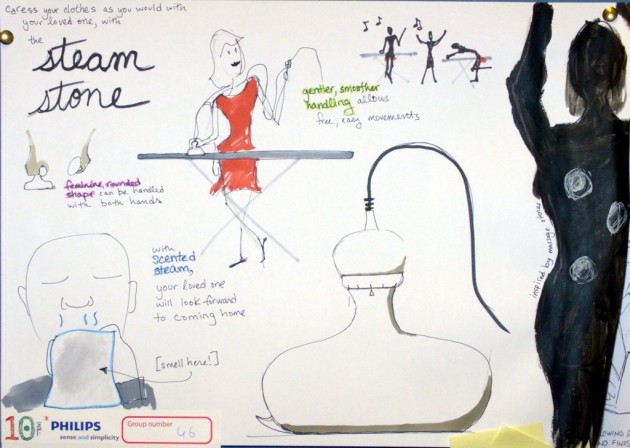 caress your clothes as you would with
your loved one, with
the
steam
stone
gentler, smoother
handling allows
free, easy movements
feminine, rounded
shape can be handled
with both hands
with
scented
steam,
your loved one
will look forward
to coming home
[smell here!]
inspired by massage stones
10
PHILIPS
sense and simplicity
Group number
46